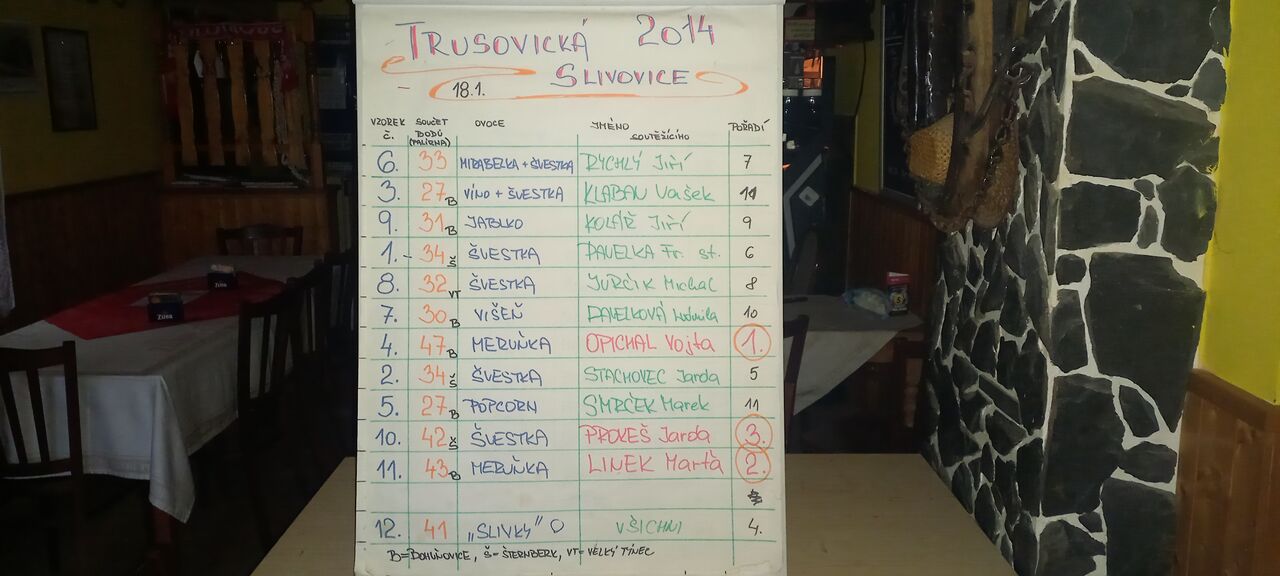 TRUSOVICKÁ 2014
SLIVOVICE
18.1.
VZOREK Č. SOUČET BODŮ (PALÍRNA) OVOCE JMÉNO SOUTĚŽÍCÍHO POŘADÍ
6. 33 MIRABELKA + ŠVESTKA RYCHLÝ Jiří 7
3. 27 B VÍNO + ŠVESTKA KLABAN Vašek 11
9. 31 B JABLKO KOLÁŘ Jiří 9
1. - 34 Š ŠVESTKA PAVELKA Fr. st. 6
8. 32 VT ŠVESTKA JURČÍK Michal 8
7. 30 B VIŠEŇ PAVELKOVÁ Ludmila 10
4. 47 B MERUŇKA OPICHAL Vojta 1.
2. 34 Š ŠVESTKA STACHOVEC Jarda 5
5. 27 B POPCORN SMRČEK Marek 11
10. 42 Š ŠVESTKA PROKEŠ Jarda 3.
11. 43 B MERUŇKA LINEK Marťa 2.
12. 41 „SLIVKY" VŠICHNI 4.
B=BOHUŇOVICE, Š-ŠTERNBERK, VT-VELKÝ TÝNEC